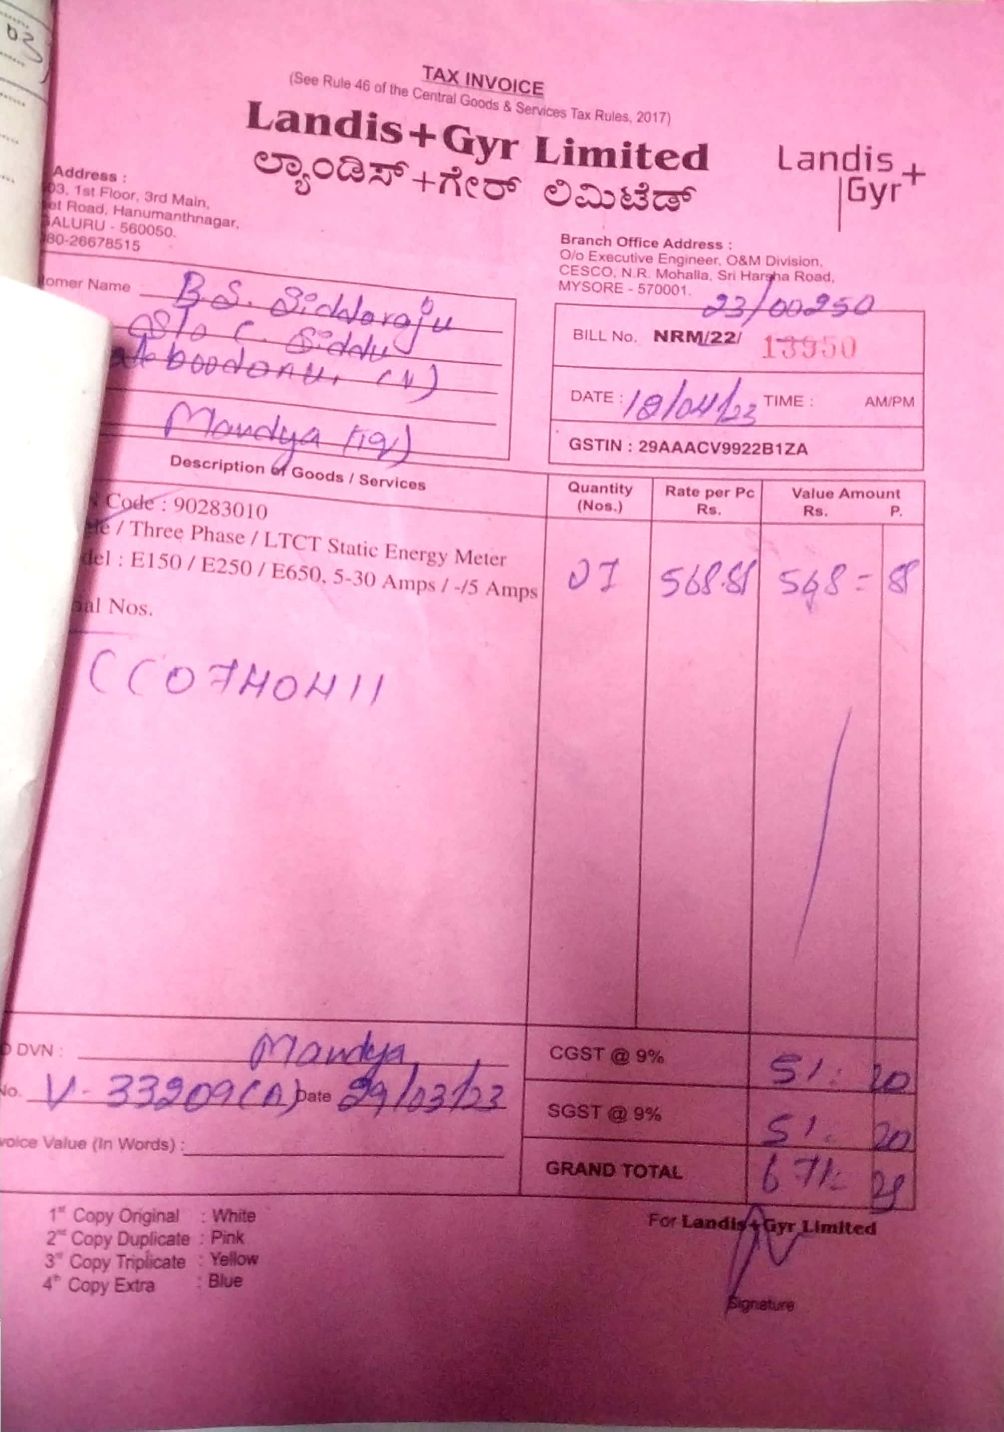 TAX INVOICE
(See Rule 46 of the Central Goods & Services Tax Rules, 2017)
Landis+Gyr Limited
ಲ್ಯಾಂಡಿಸ್+ಗೇರ್ ಲಿಮಿಟೆಡ್
Landis+
Gyr
Address :
03, 1st Floor, 3rd Main,
et Road, Hanumanthnagar,
ALURU - 560050.
80-26678515
Branch Office Address :
O/o Executive Engineer, O&M Division,
CESCO, N.R. Mohalla, Sri Harsha Road,
MYSORE - 570001.
omer Name B S. Siddaraju
S/o C. Siddu
boodanu, (V)
Mandya (TQ)
23/00250
BILL No. NRM/22/ 13950
DATE : 18/04/23 TIME : AM/PM
GSTIN : 29AAACV9922B1ZA
Description of Goods / Services
Quantity (Nos.)
Rate per Pc Rs.
Value Amount Rs. P.
Code : 90283010
le / Three Phase / LTCT Static Energy Meter
del : E150 / E250 / E650, 5-30 Amps / -/5 Amps
01 568.81 568 = 81
al Nos.
CC0740411
DVN : Mandya
No. V-33209(A) Date 29/03/23
voice Value (In Words) :
CGST @ 9% 51: 20
SGST @ 9% 51: 20
GRAND TOTAL 671: 21
1st Copy Original : White
2nd Copy Duplicate : Pink
3rd Copy Triplicate : Yellow
4th Copy Extra : Blue
For Landis+Gyr Limited
Signature